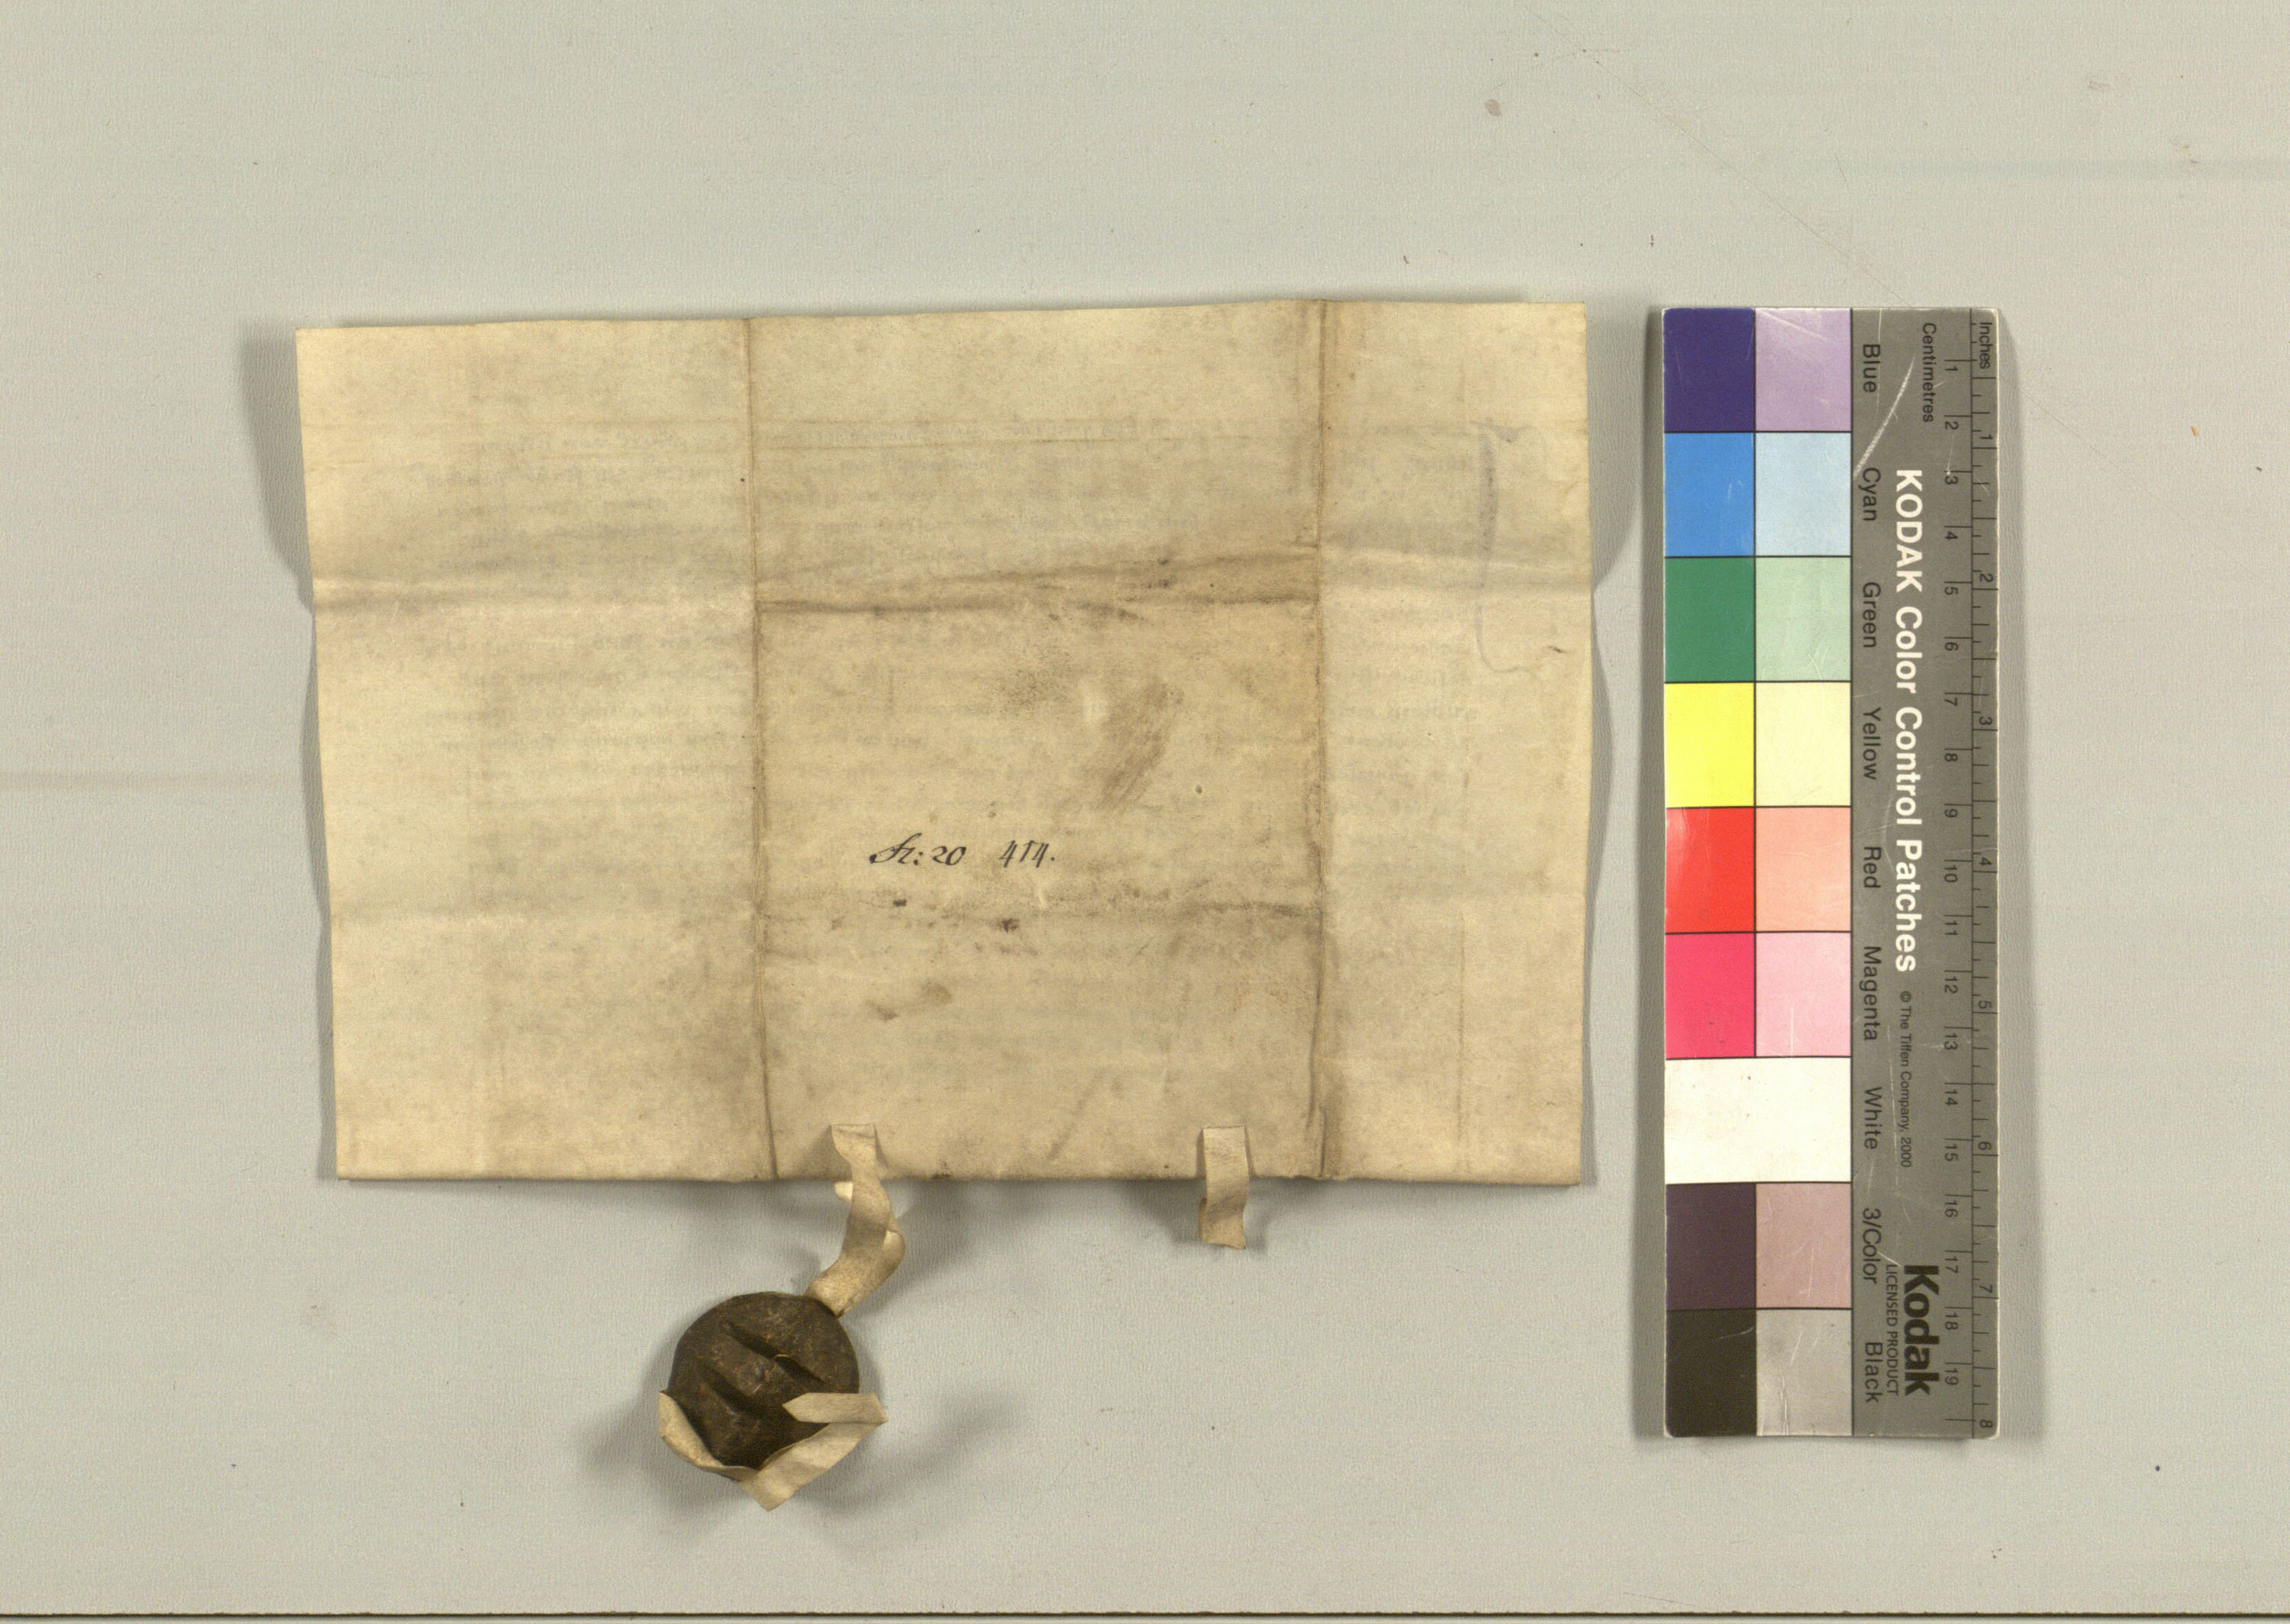 St: 20 414.
Inches
Centimetres
1 2 3 4 5 6 7 8
1 2 3 4 5 6 7 8 9 10 11 12 13 14 15 16 17 18 19
KODAK Color Control Patches © The Tiffen Company, 2000
Kodak
LICENSED PRODUCT
Blue Cyan Green Yellow Red Magenta White 3/Color Black